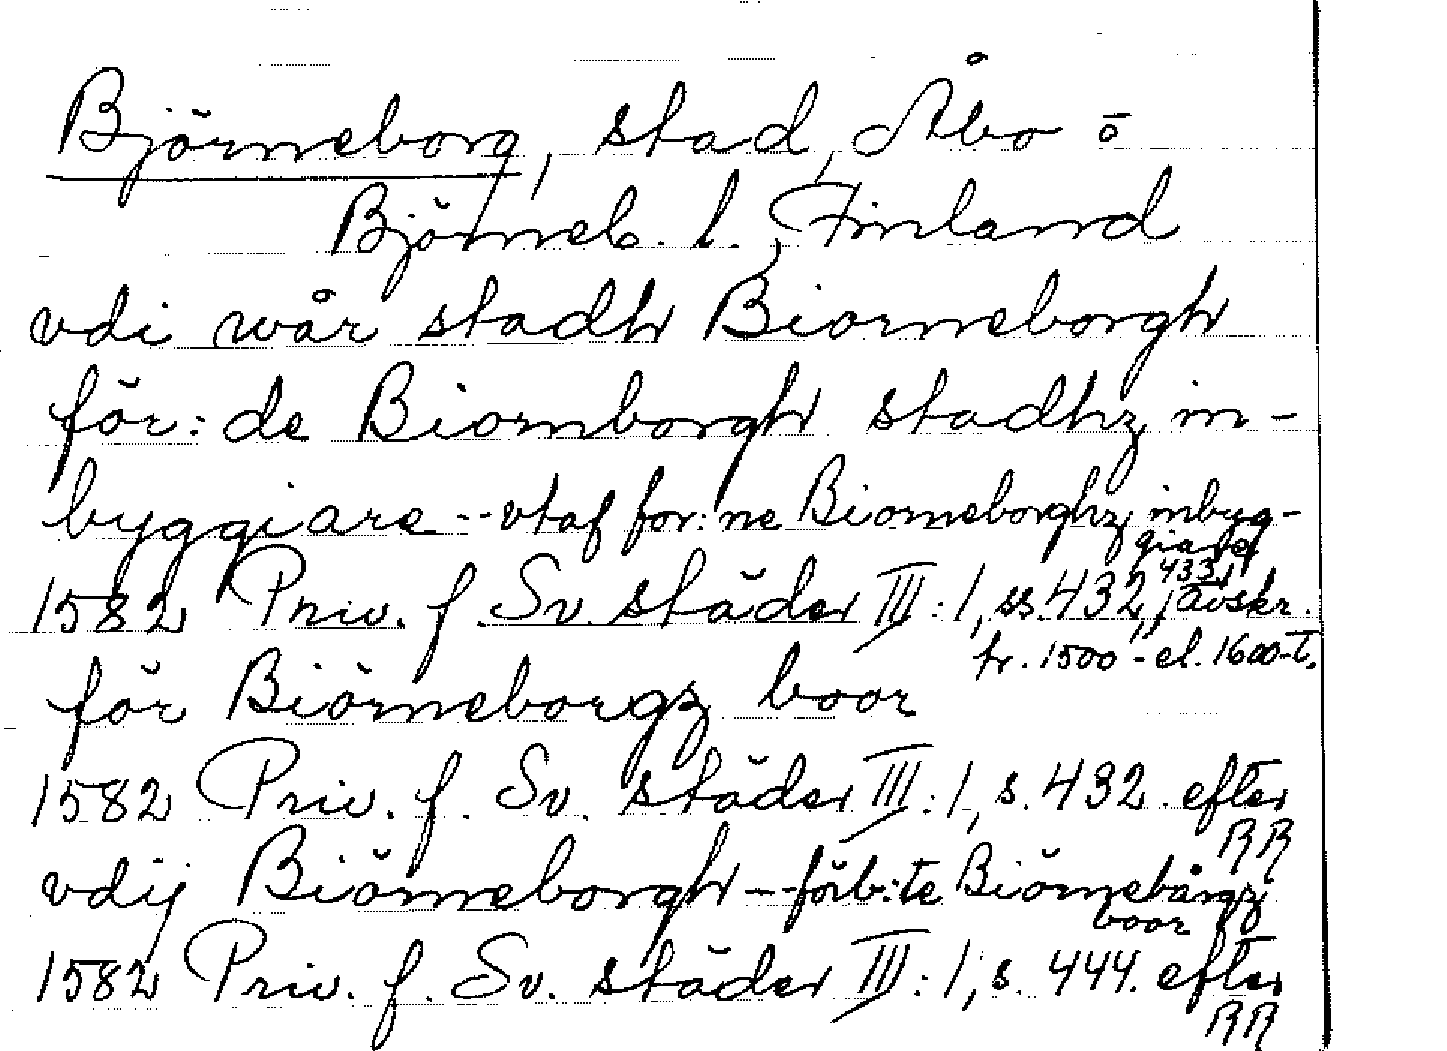 Björneborg, stad, Åbo o
Björneb. l., Finland
vdi wår stadh Biorneborgh
för: de Biornborgh stadhz in-
byggiare -- vtaf for: ne Biorneborghz inbyg-
giare
1582 Priv. f. Sv. städer III: 1, ss. 432, 433, avskr.
fr. 1500- el. 1600-t.
för Biörneborgz boor
1582 Priv. f. Sv. städer III: 1, s. 432. efter
RR
vdij Biörneborgh -- förb: te Biörnebårgz
boor
1582 Priv. f. Sv. städer III: 1, s. 444. efter
RR